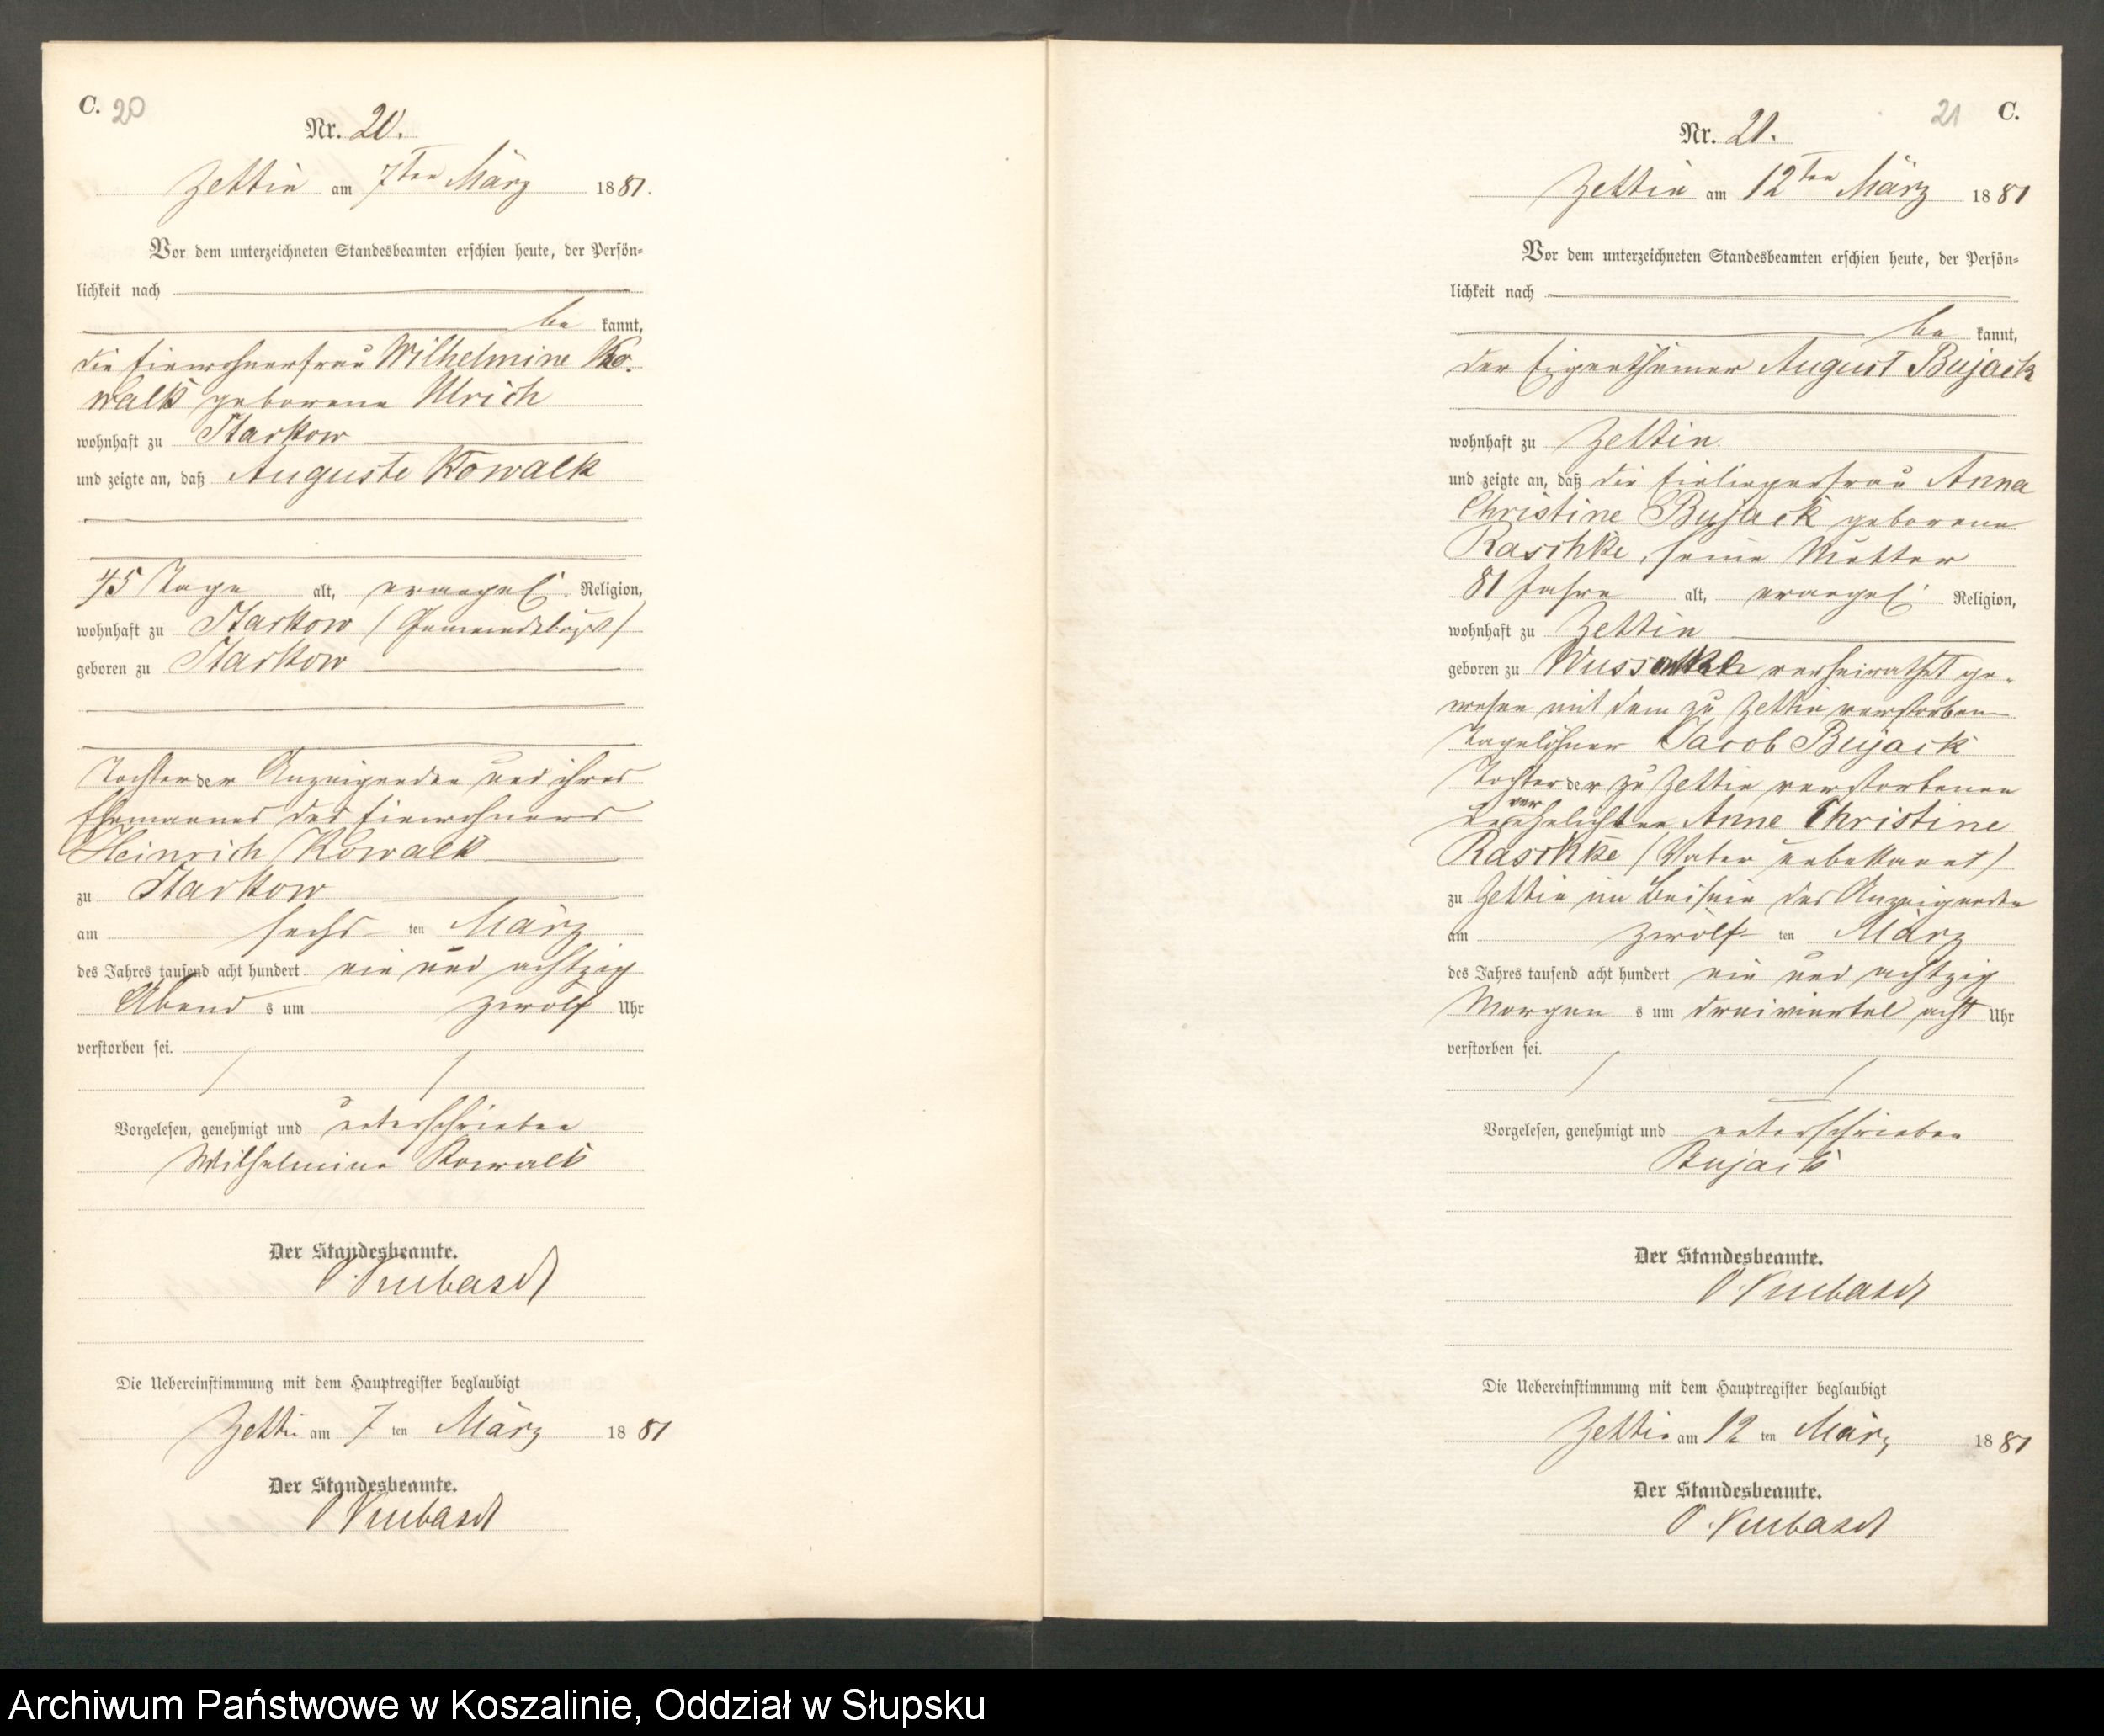 C. 20
Nr. 20.
Zettin am 7ten März 1881.
Vor dem unterzeichneten Standesbeamten erschien heute, der Persön-
lichkeit nach
be kannt,
die Einwohnerfrau Wilhelmine Ko-
walk geborene Ulrich
wohnhaft zu Starkow
und zeigte an, daß Auguste Kowalk
45 Tage alt, evangel. Religion,
wohnhaft zu Starkow (Gemeindebezirk)
geboren zu Starkow
Tochter der Anzeigenden und ihres
Ehemannes des Einwohners
Heinrich Kowalk
zu Starkow
am sechs ten März
des Jahres tausend acht hundert ein und achtzig
Abend s um zwölf Uhr
verstorben sei.
Vorgelesen, genehmigt und unterschrieben
Wilhelmine Kowalk
Der Standesbeamte.
Die Uebereinstimmung mit dem Hauptregister beglaubigt
Zettin am 7 ten März 1881
Der Standesbeamte.
21 C.
Nr. 21.
Zettin am 12ten März 1881
Vor dem unterzeichneten Standesbeamten erschien heute, der Persön-
lichkeit nach
be kannt,
der Eigenthümer August Bujack
wohnhaft zu Zettin
und zeigte an, daß die Einliegerfrau Anna
Christine Bujack geborene
Raschke, seine Mutter
81 Jahre alt, evangel. Religion,
wohnhaft zu Zettin
geboren zu verheirathet ge-
wesen mit dem zu Zettin verstorben
Tagelöhner Jacob Bujack
Tochter der zu Zettin verstorbenen
Anne Christine
Raschke (Vater unbekannt)
zu Zettin im Beisein des Anzeigenden
am zwölf ten März
des Jahres tausend acht hundert ein und achtzig
Morgen s um dreiviertel acht Uhr
verstorben sei.
Vorgelesen, genehmigt und unterschrieben
Bujack
Der Standesbeamte.
Die Uebereinstimmung mit dem Hauptregister beglaubigt
Zettin am 12 ten März 1881
Der Standesbeamte.
Archiwum Państwowe w Koszalinie, Oddział w Słupsku